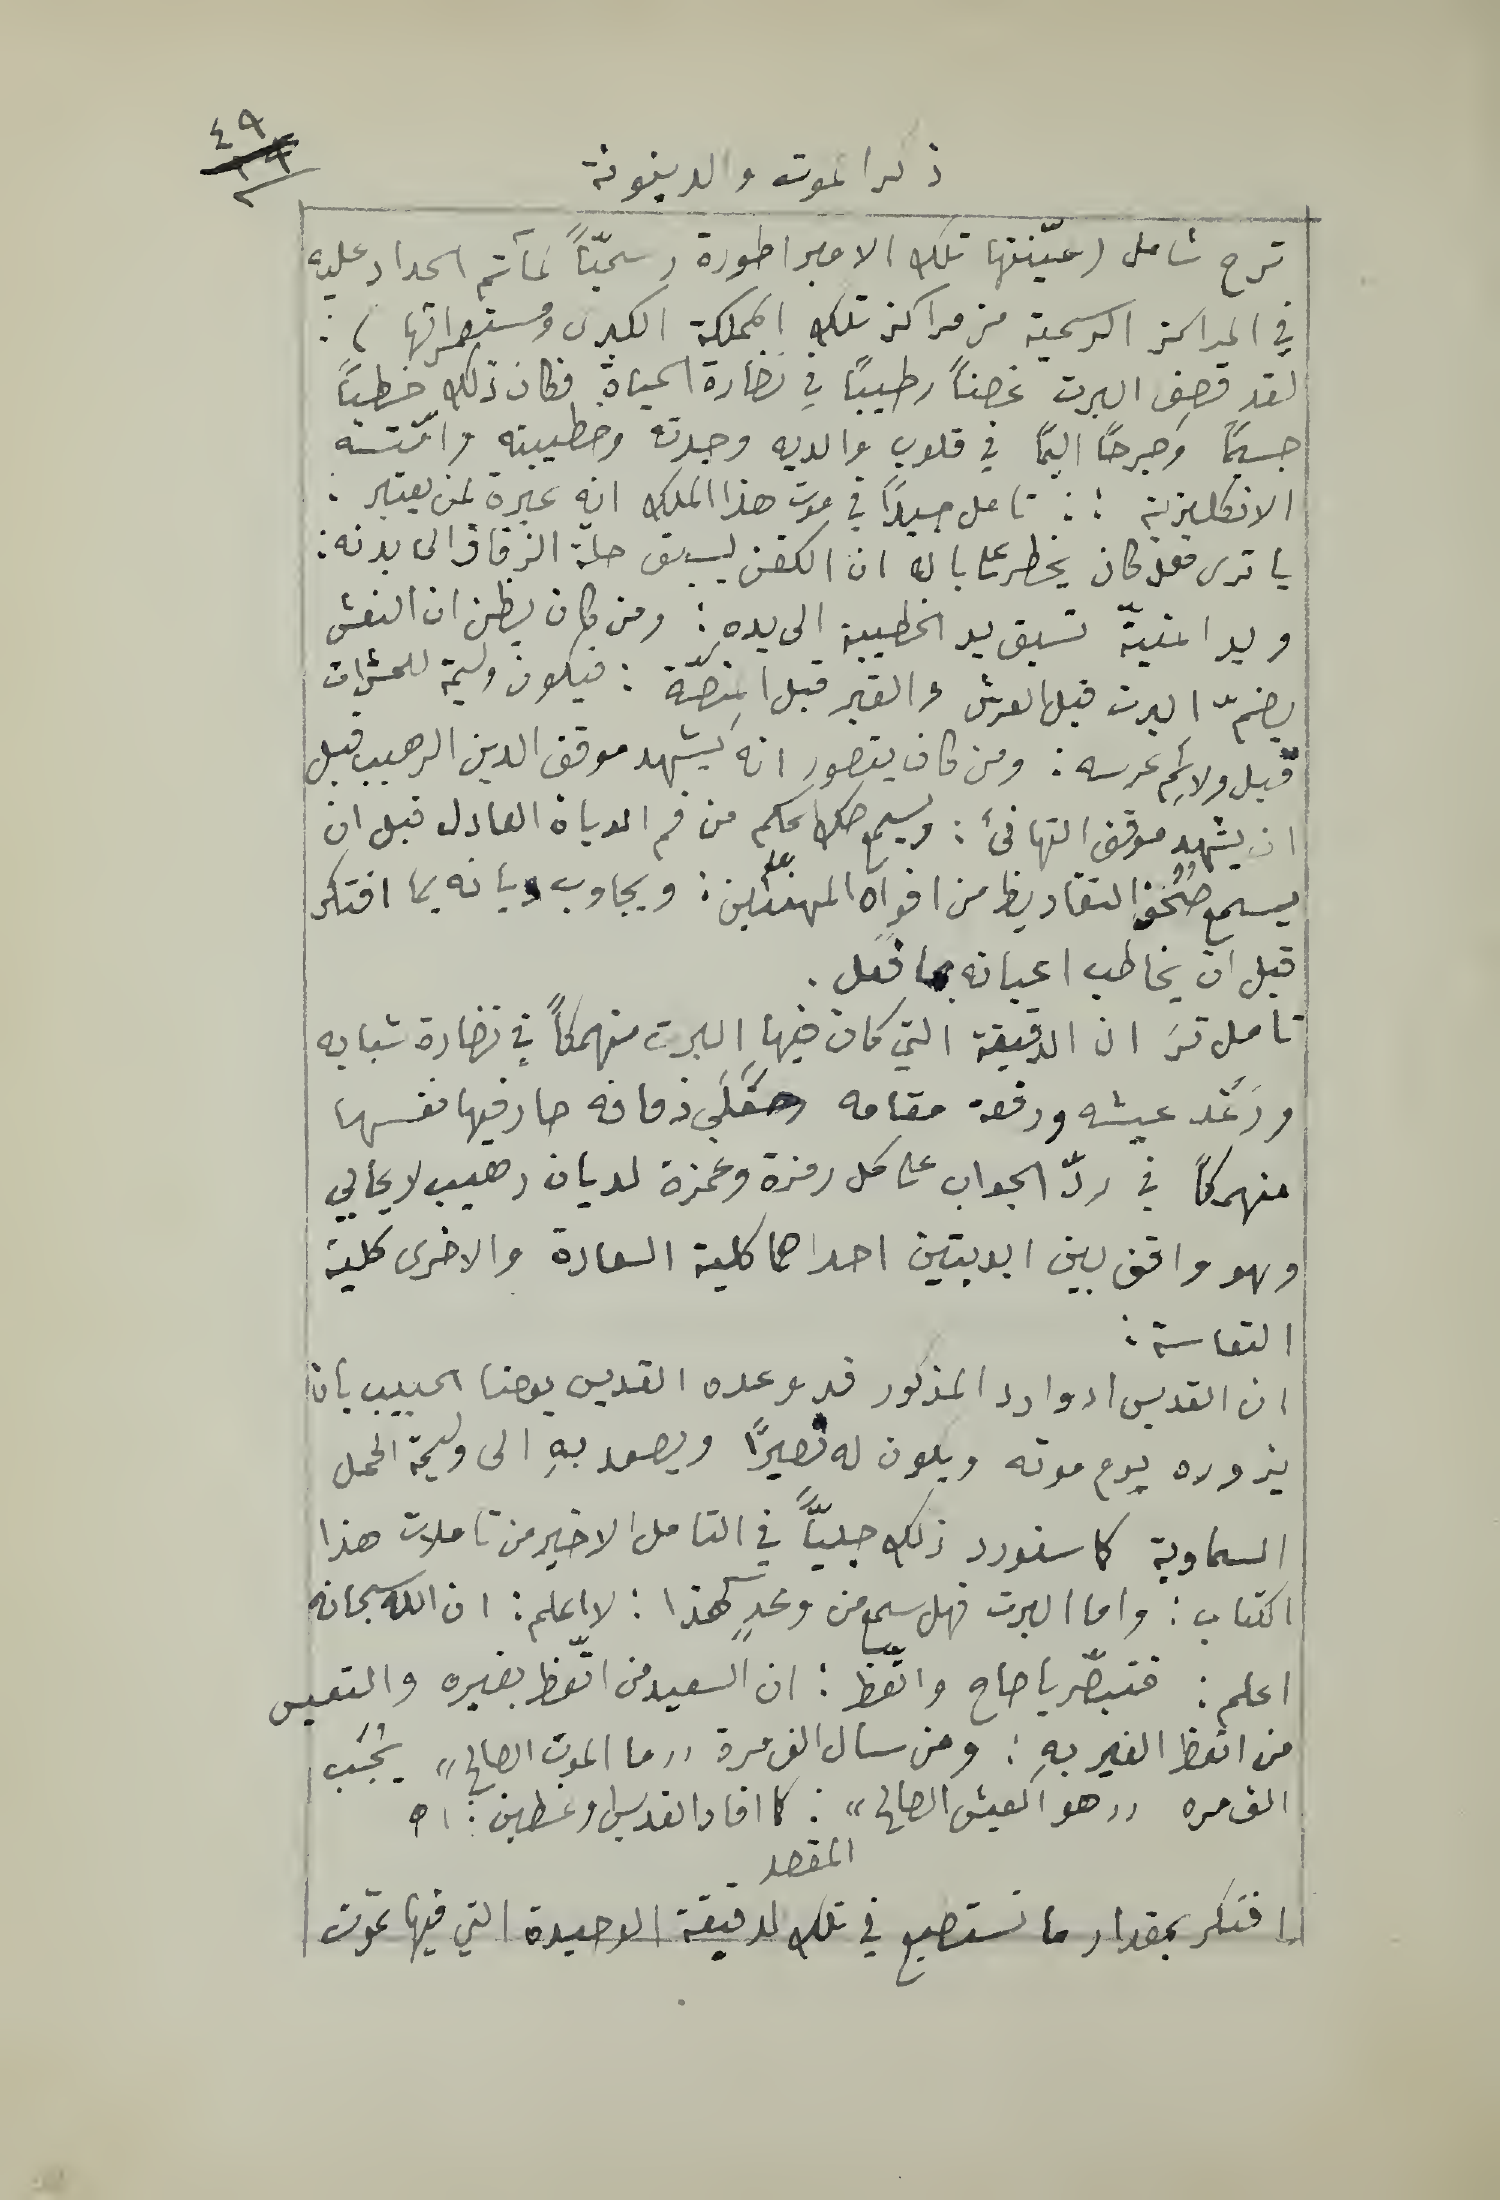 ٤٩
ذكر الموت والدينونة
ترح شامل (عيّنتها تلك الامبراطورة رسميّاً لمآتم الحداد عليه
في المراكز الرسمية من مراكز تلك المملكة الكبرى ومستعمراتها ) :
لقد قصف البرت غصناً رطيباً في نضارة الحياة فكان ذلك خطباً
جسيماً وجرحاً اليماً في قلوب والديه وجدته وخطيبته وامّته
الانكليزية : : تامل جيداً في موت هذا الملك انه عبرة لمن يعتبر :
يا ترى فهل كان يخطر على باله ان الكفن ليسبق حلة الزفاف الى بدنه :
ويد المنيّة تسبق يد الخطيبة الى يده : ومن كان يظن ان النعش
يضمّ البرت قبل العرش والقبر قبل المنصّة : فيكون وليمة للحشرات
قبل ولائم عرسه : ومن كان يتصور انه ليشهد موقف الدين الرهيب قبل
ان يشهد موقف التهانئ : ويسمع صك الحكم من فم الديان العادل قبل ان
يسمع صُحُف التقاريظ من افواه المهنئين : ويجاوب ديانه بما افتكر
قبل ان يخاطب اعيانه بما فعل .
تامل ترَ ان الدقيقة التي كان فيها البرت منهمكاً في نضارة شبابه
ورَغَد عيشه ورفعة مقامه زفافه صار فيها نفسها
منهمكاً في ردّ الجواب على كل رمزة وغمزة لديان رهيب لا يحابي
وهو واقف بين ابديتين احداهما كلية السعادة والاخرى كلية
التعاسة :
ان القديس ادوارد المذكور قد وعده القديس يوحنا الحبيب بان
يزوره يوم موته ويكون له نصيراً ويصعد بهِ الى وليمة الحمل
السماوية كما سنورد ذلك جليّاً في التامل الاخير من تاملات هذا
الكتاب : واما البرت فهل سمع من وعدٍ كهذا : لا اعلم : ان الله سبحانه
اعلم : فتبصّر يا صاح واتّعظ : ان السعيد من اتّعظ بغيره والتعيس
من اتعظ الغير بهِ : ومن سأل الف مرة ,,ما الموت الصالح,, يُجَب
الف مره ,,هو العيش الصالح,, : كما افاد القديس اوغسطين : اه
المقصد
افتكر بمقدار ما تستطيع في تلك الدقيقة الوحيدة التي فيها تموت